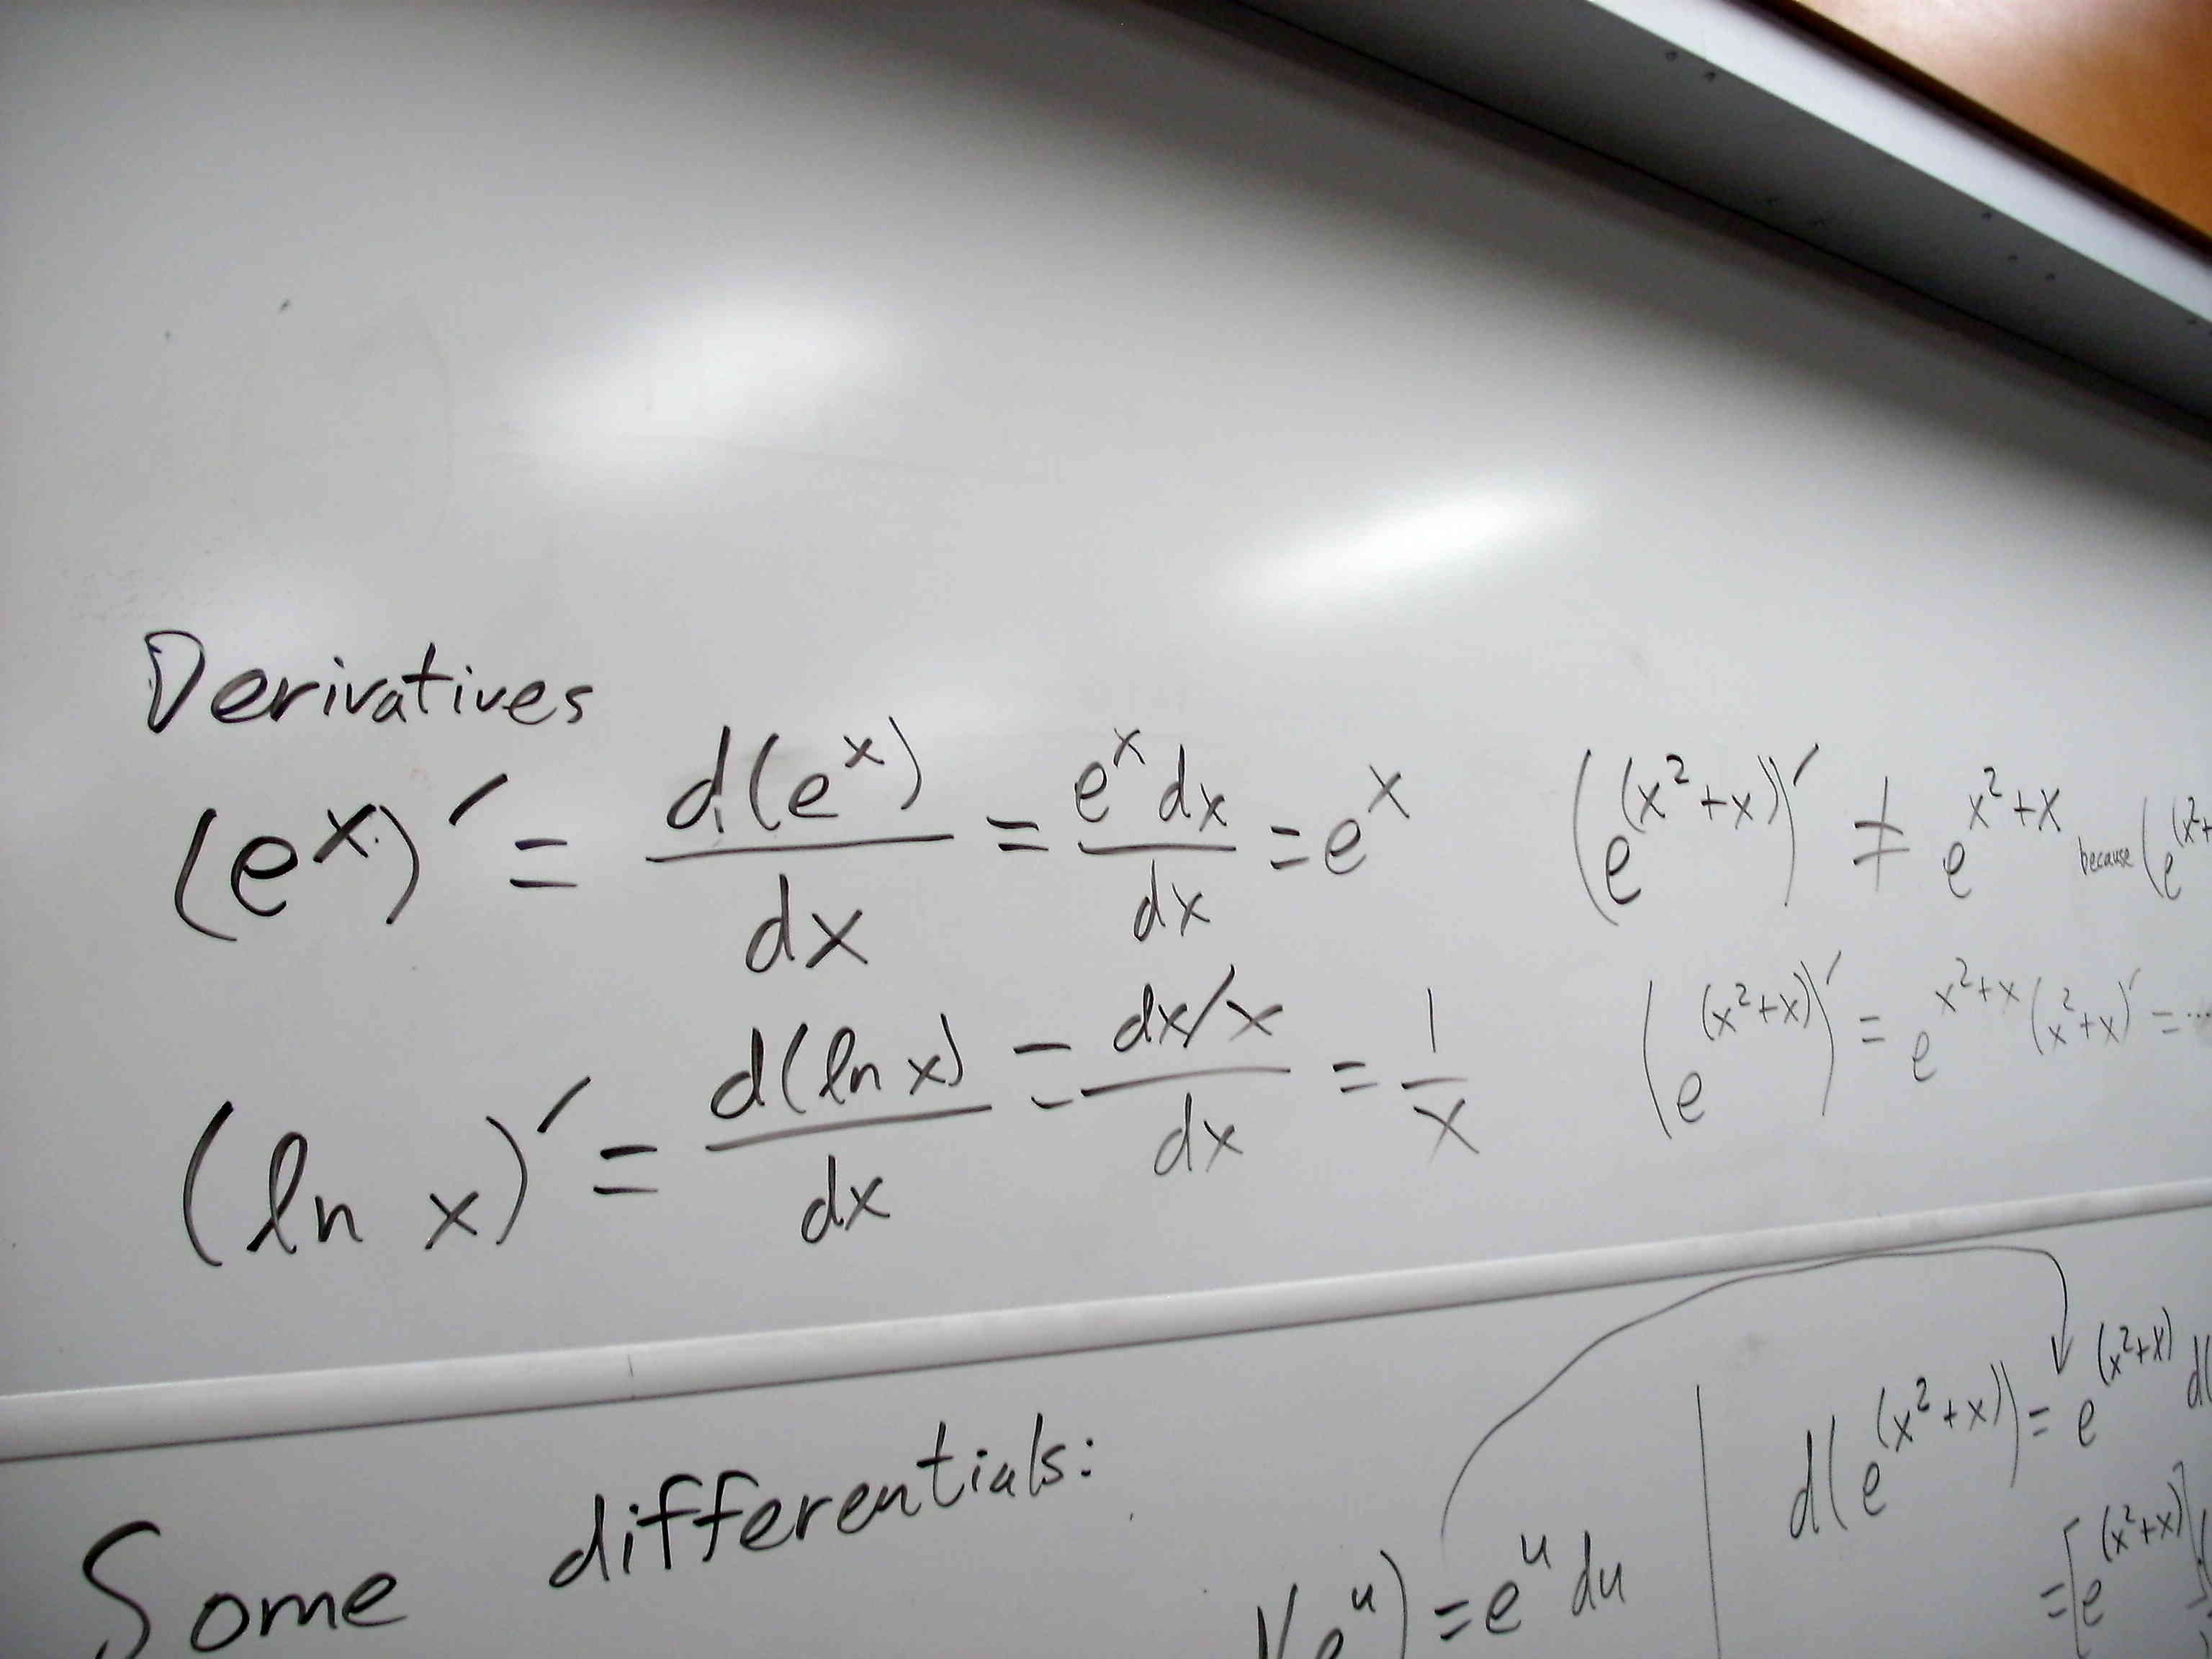 Derivatives
(e^x)′ = d(e^x)/dx = e^x dx/dx = e^x
(e^(x²+x))′ ≠ e^(x²+x) because (e^(x²+
(ln x)′ = d(ln x)/dx = (dx/x)/dx = 1/x
(e^(x²+x))′ = e^(x²+x) (x²+x)′ = ...
Some differentials:
(e^u) = e^u du
d(e^(x²+x)) = e^(x²+x) d(
= [e^(x²+x)](